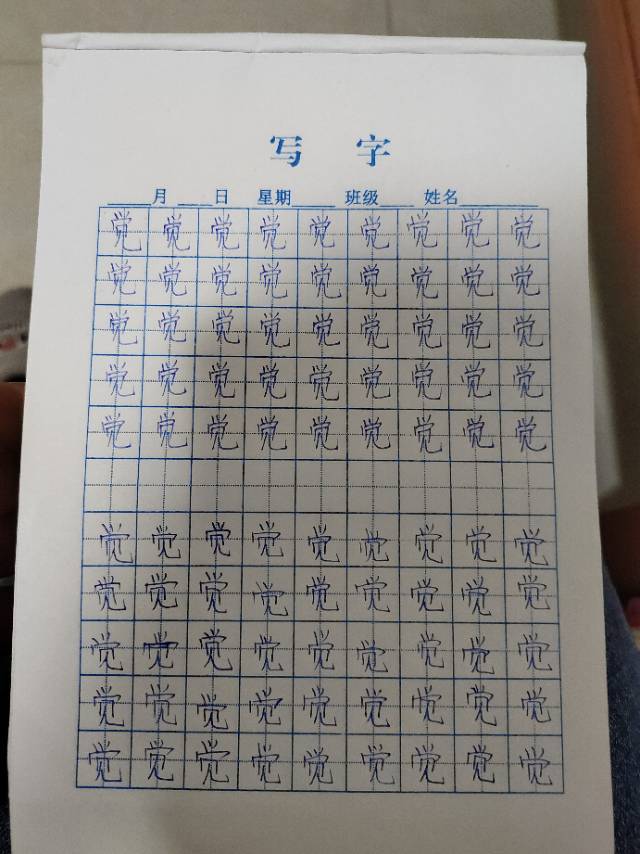 写 字
____月 ____日 星期_____ 班级____ 姓名_________
觉 觉 觉 觉 觉 觉 觉 觉 觉
觉 觉 觉 觉 觉 觉 觉 觉 觉
觉 觉 觉 觉 觉 觉 觉 觉 觉
觉 觉 觉 觉 觉 觉 觉 觉 觉
觉 觉 觉 觉 觉 觉 觉 觉 觉
觉 觉 觉 觉 觉 觉 觉 觉 觉
觉 觉 觉 觉 觉 觉 觉 觉 觉
觉 觉 觉 觉 觉 觉 觉 觉 觉
觉 觉 觉 觉 觉 觉 觉 觉 觉
觉 觉 觉 觉 觉 觉 觉 觉 觉